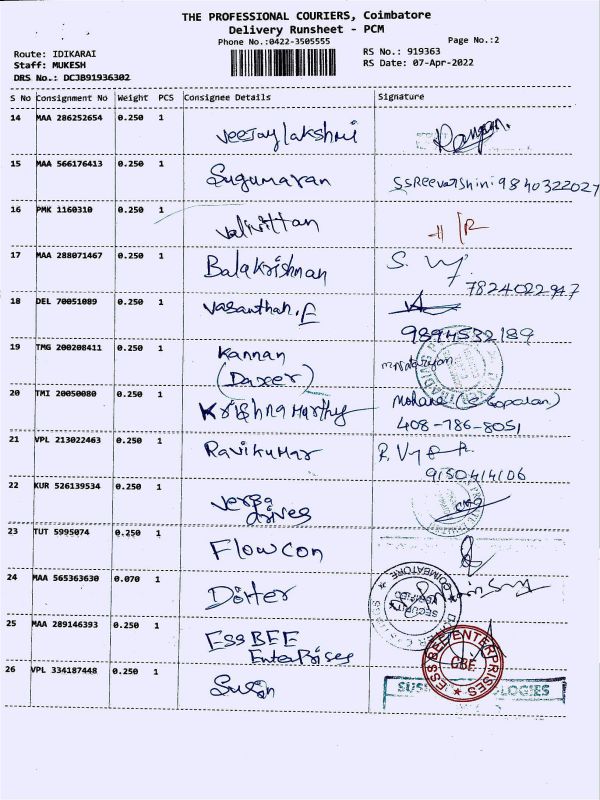 THE PROFESSIONAL COURIERS, Coimbatore
Delivery Runsheet - PCM
Phone No.:0422-3505555
Page No.:2
Route: IDIKARAI
RS No.: 919363
Staff: MUKESH
RS Date: 07-Apr-2022
DRS No.: DCJB91936302
S No Consignment No Weight PCS Consignee Details Signature
14 MAA 286252654 0.250 1 Veejaylakshmi
15 MAA 566176413 0.250 1 Sugumaran SSReevarshini 9840322027
16 PMK 1160310 0.250 1 Valivittan
17 MAA 288071467 0.250 1 Balakrishnan S. 7824022947
18 DEL 70051089 0.250 1 Vasanthan.E
9894532189
19 TMG 200208411 0.250 1 Kannan
(Daxer)
20 TMI 20050080 0.250 1 Krishna Marthy Mohana (@ Gopalan)
408-786-8051
21 VPL 213022463 0.250 1 Ravikumar
9150414106
22 KUR 526139534 0.250 1 Versa
drives
23 TUT 5995074 0.250 1 Flowcon
24 MAA 565363630 0.070 1 Doiter
COIMBATORE
SECURITY
25 MAA 289146393 0.250 1 Ess BEE
Enterprises
ESS BEE ENTERPRISES
CBE
26 VPL 334187448 0.250 1 Susin